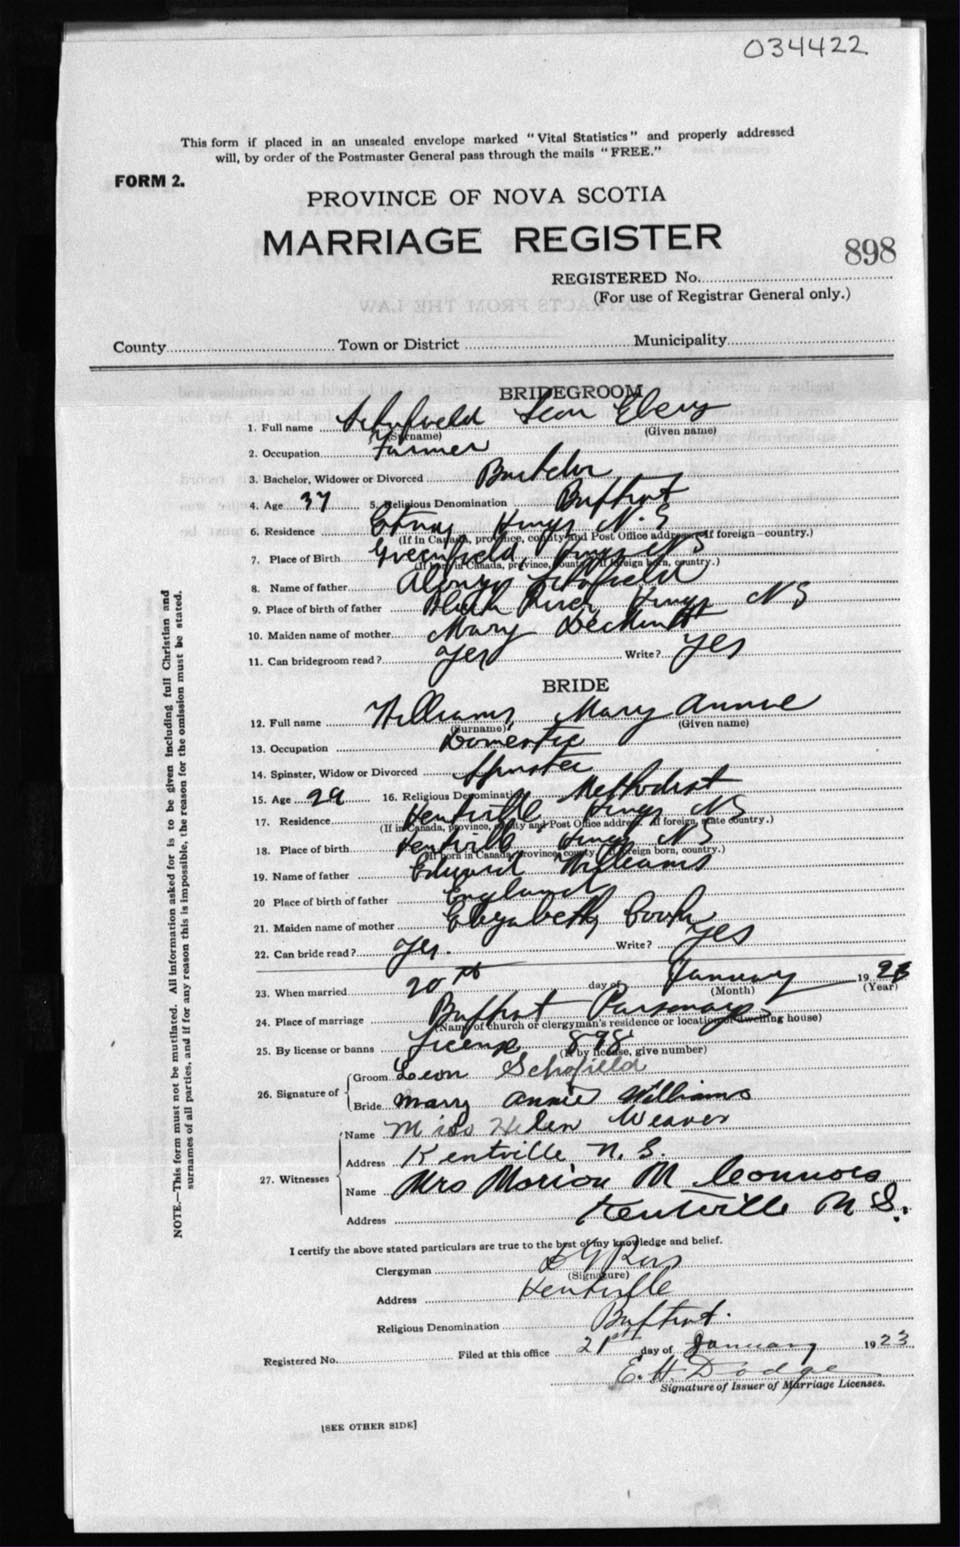 034422
This form if placed in an unsealed envelope marked "Vital Statistics" and properly addressed
will, by order of the Postmaster General pass through the mails "FREE."
FORM 2.
PROVINCE OF NOVA SCOTIA
MARRIAGE REGISTER
898
REGISTERED No.
(For use of Registrar General only.)
County Town or District Municipality
BRIDEGROOM
1. Full name Schofield Leon
(Surname) (Given name)
2. Occupation Farmer
3. Bachelor, Widower or Divorced Bachelor
4. Age 37 5. Religious Denomination Baptist
6. Residence Kings N.S
(If in Canada, province, county and Post Office address. If foreign—country.)
7. Place of Birth Greenfield, Kings NS
(If born in Canada, province, county. If foreign born, country.)
8. Name of father Alonzo Schofield
9. Place of birth of father Black River Kings NS
10. Maiden name of mother Mary
11. Can bridegroom read? Yes Write? Yes
BRIDE
12. Full name Williams, Mary Annie
(Surname) (Given name)
13. Occupation Domestic
14. Spinster, Widow or Divorced Spinster
15. Age 29 16. Religious Denomination Methodist
17. Residence Kentville Kings NS
(If in Canada, province, county and Post Office address. If foreign, state country.)
18. Place of birth Kentville Kings NS
(If born in Canada, province, county. If foreign born, country.)
19. Name of father Edward Williams
20 Place of birth of father England
21. Maiden name of mother Elizabeth Cook
22. Can bride read? Yes. Write? Yes
23. When married 20th day of January 1923
(Month) (Year)
24. Place of marriage Baptist Parsonage
(Name of church or clergyman's residence or location of dwelling house)
25. By license or banns License 898
(If by license, give number)
26. Signature of
Groom Leon Schofield
Bride Mary Annie Williams
27. Witnesses
Name Miss Helen Weaver
Address Kentville N.S.
Name Mrs Marion M Connors
Address Kentville N S.
I certify the above stated particulars are true to the best of my knowledge and belief.
Clergyman
(Signature)
Address Kentville
Religious Denomination Baptist.
Registered No. Filed at this office 21st day of January 1923
E. H. Dodge
Signature of Issuer of Marriage Licenses.
[SEE OTHER SIDE]
NOTE.—This form must not be mutilated. All information asked for is to be given including full Christian and
surnames of all parties, and if for any reason this is impossible, the reason for the omission must be stated.